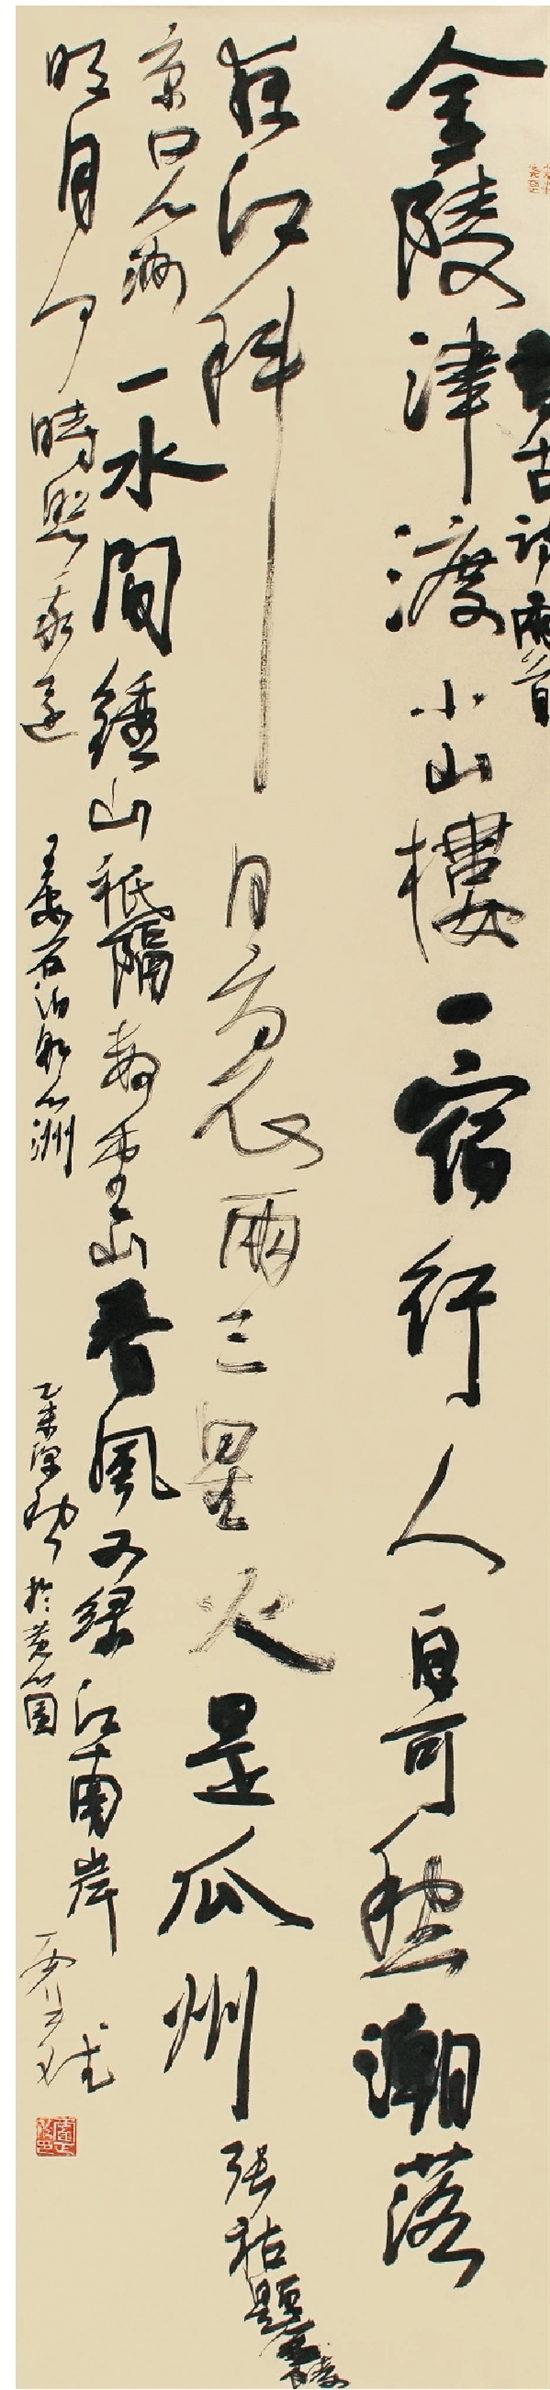 古诗兩首
金陵津渡小山樓一宿行人自可愁潮落
夜江斜月裏兩三星火是瓜州 张祜題金陵
京口瓜洲一水間鍾山祇隔數重山春風又绿江南岸
明月何時照我還 王安石泊船瓜洲 乙未深秋於黄瓜園